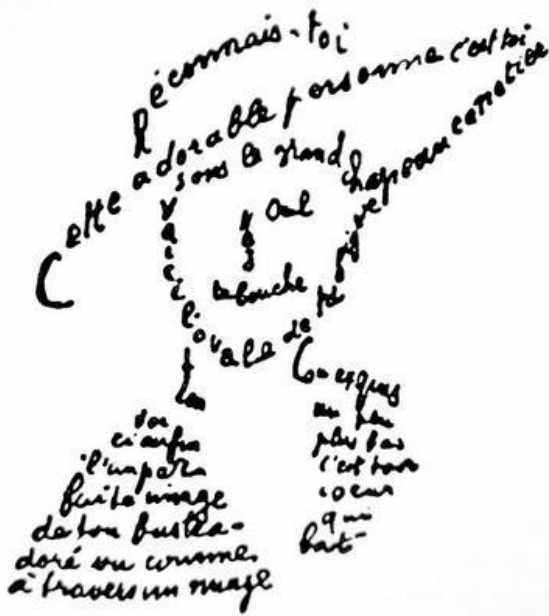 Reconnais-toi
Cette adorable personne c'est toi
sous le grand chapeau canotier
Oeil
Nez
la bouche
Voici l'ovale de ta figure
ton
Cou exquis
voi
ci enfin
l'impar
faite image
de ton buste a-
doré vu comme
à travers un nuage
un peu
plus bas
c'est ton
coeur
qui
bat